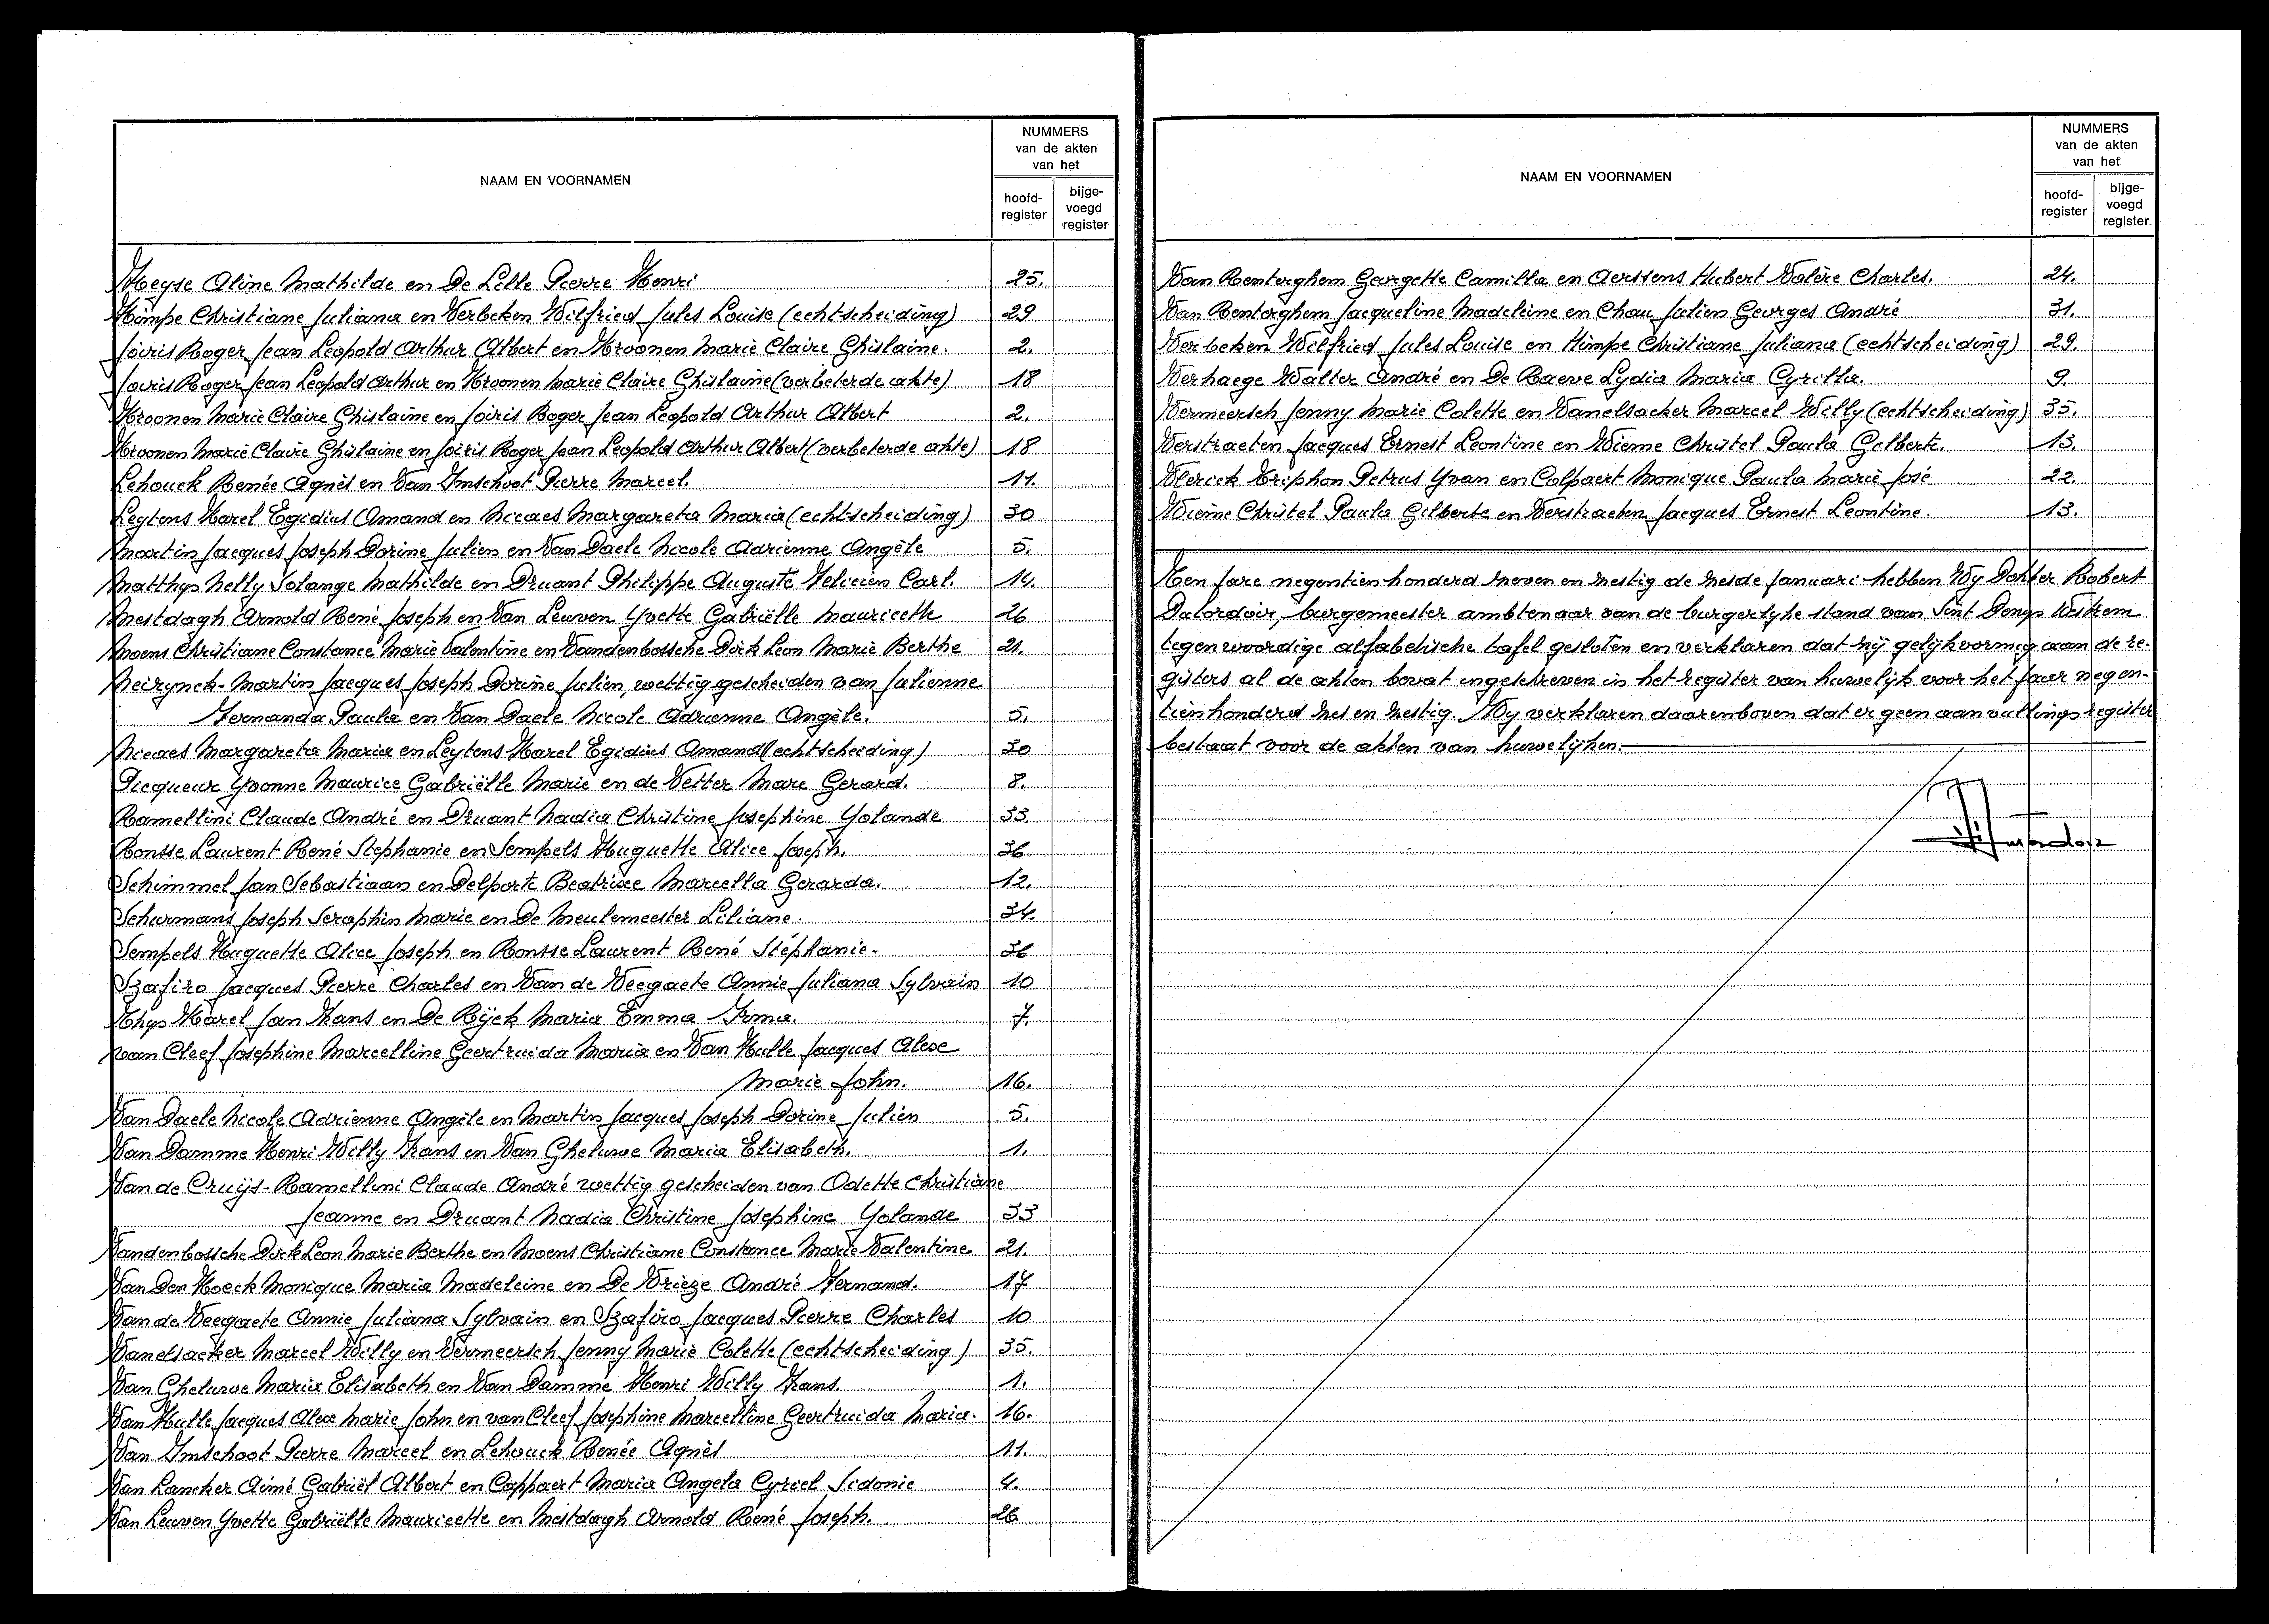 NAAM EN VOORNAMEN
NUMMERS
van de akten
van het
hoofd-
register
bijge-
voegd
register
Heyse Aline Mathilde en De Lille Pierre Henri 25.
Himpe Christiane Juliana en Verbeken Wilfried Jules Louise (echtscheiding) 29
Joiris Roger Jean Leopold Arthur Albert en Kroonen Marie Claire Ghislaine. 2.
Joiris Roger Jean Leopold Arthur en Kroonen Marie Claire Ghislaine (verbeterde akte) 18
Kroonen Marie Claire Ghislaine en Joiris Roger Jean Leopold Arthur Albert 2.
Kroonen Marie Claire Ghislaine en Joiris Roger Jean Leopold Arthur Albert (verbeterde akte) 18
Lehouck Renée Agnès en Van Imschoot Pierre Marcel. 11.
Leytens Karel Egidius Amand en Nicaes Margareta Maria (echtscheiding) 30
Martin Jacques Joseph Dorine Julien en Van Daele Nicole Adrienne Angèle 5.
Matthys Nelly Solange Mathilde en Druant Philippe Auguste Felicien Carl. 14.
Mestdagh Arnold René Joseph en Van Leuven Yvette Gabriëlle Mauricette 26
Moens Christiane Constance Marie Valentine en Vandenbossche Dirk Leon Marie Berthe 21.
Neirynck-Martin Jacques Joseph Dorine Julien, wettig gescheiden van Julienne
Fernanda Paula en Van Daele Nicole Adrienne Angèle. 5.
Nicaes Margareta Maria en Leytens Karel Egidius Amand (echtscheiding) 30
Picqueur Yvonne Maurice Gabriëlle Marie en de Vetter Marc Gerard. 8.
Ramellini Claude André en Druant Nadia Christine Josephine Yolande 33.
Ronsse Laurent René Stephanie en Sempels Huguette Alice Joseph. 36
Schimmel Jan Sebastiaan en Delporte Beatrice Marcella Gerarda. 12.
Schurmans Joseph Seraphin Marie en De Meulemeester Liliane. 34.
Sempels Huguette Alice Joseph en Ronsse Laurent René Stéphanie- 36
Szafiro Jacques Pierre Charles en Van de Veegaete Annie Juliana Sylvain 10
Thys Karel Jan Frans en De Rijck Maria Emma Irma. 7.
van Cleef Josephine Marcelline Geertruida Maria en Van Hulle Jacques Alexe
Marie John. 16.
Van Daele Nicole Adrienne Angèle en Martin Jacques Joseph Dorine Julien 5.
Van Damme Henri Willy Frans en Van Gheluwe Maria Elisabeth. 1.
Van de Cruijs-Ramellini Claude André wettig gescheiden van Odette Christiane
Jeanne en Druant Nadia Christine Josephine Yolande 33
Vandenbossche Dirk Leon Marie Berthe en Moens Christiane Constance Marie Valentine 21.
Van Den Hoeck Monique Maria Madeleine en De Vrieze André Fernand. 17
Van de Veegaete Annie Juliana Sylvain en Szafiro Jacques Pierre Charles 10
Vanelsacker Marcel Willy en Vermeersch Jenny Marie Colette (echtscheiding) 35.
Van Gheluwe Maria Elisabeth en Van Damme Henri Willy Frans. 1.
Van Hulle Jacques Alexe Marie John en van Cleef Josephine Marcelline Geertruida Maria. 16.
Van Imschoot Pierre Marcel en Lehouck Renée Agnès 11.
Van Lancker Aimé Gabriël Albert en Cappaert Maria Angela Cyriel Sidonie 4.
Van Leuven Yvette Gabriëlle Mauricette en Mestdagh Arnold René Joseph. 26
NAAM EN VOORNAMEN
NUMMERS
van de akten
van het
hoofd-
register
bijge-
voegd
register
Van Renterghem Georgette Camilla en Aerssens Hubert Valère Charles. 24.
Van Renterghem Jacqueline Madeleine en Chau Julien Georges André 31.
Verbeken Wilfried Jules Louise en Himpe Christiane Juliana (echtscheiding) 29.
Verhaege Walter André en De Baeve Lydia Maria Cyrilla. 9.
Vermeersch Jenny Marie Colette en Vanelsacker Marcel Willy (echtscheiding) 35.
Verstraeten Jacques Ernest Leontine en Wieme Christel Paula Gilberte. 13.
Vlerick Triphon Petrus Yvan en Colpaert Monique Paula Marie José 22.
Wieme Christel Paula Gilberte en Verstraeten Jacques Ernest Leontine. 13.
Ten jare negentienhonderd zeven en zestig de zesde januari hebben Wy Dokter Robert
Dutordoir, burgemeester ambtenaar van de burgerlyke stand van Sint Denys Westrem
tegenwoordige alfabetische tafel gesloten en verklaren dat zij gelijkvormig aan de re-
gisters al de akten bevat ingeschreven in het register van huwelijk voor het jaar negen-
tienhonderd zes en zestig. Wy verklaren daarenboven dat er geen aanvullingsregister
bestaat voor de akten van huwelijken.
Dutordoir